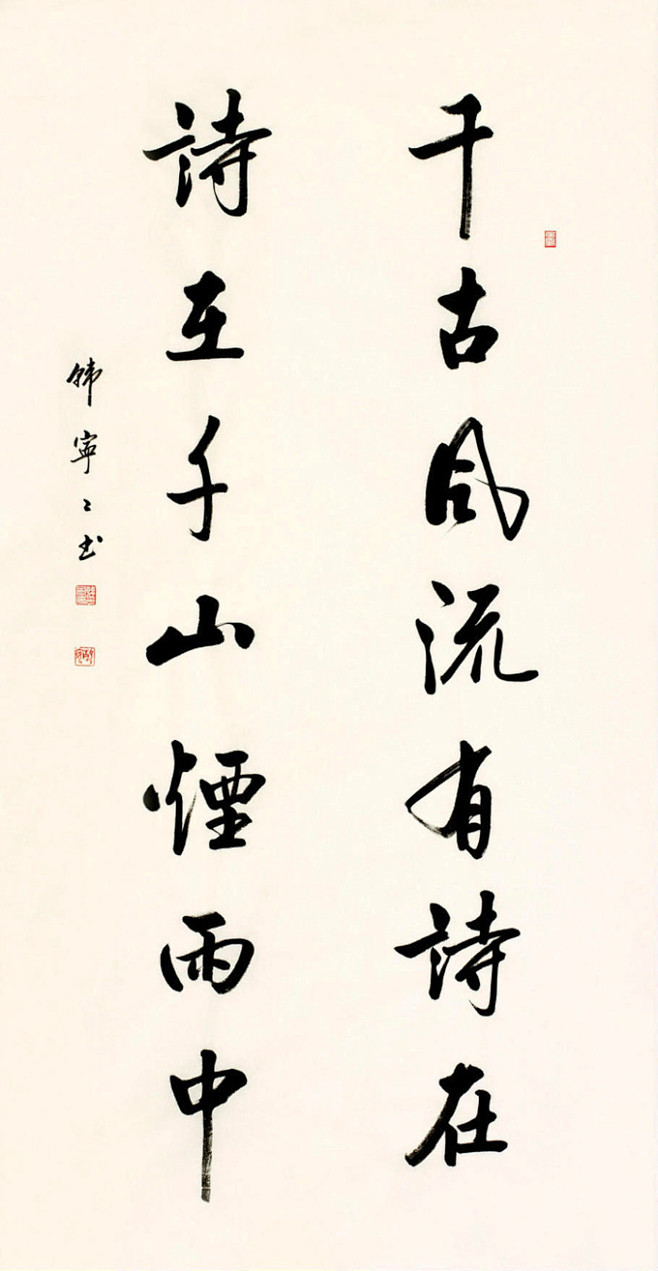 千古風流有詩在
詩在千山煙雨中
韩寧寧书